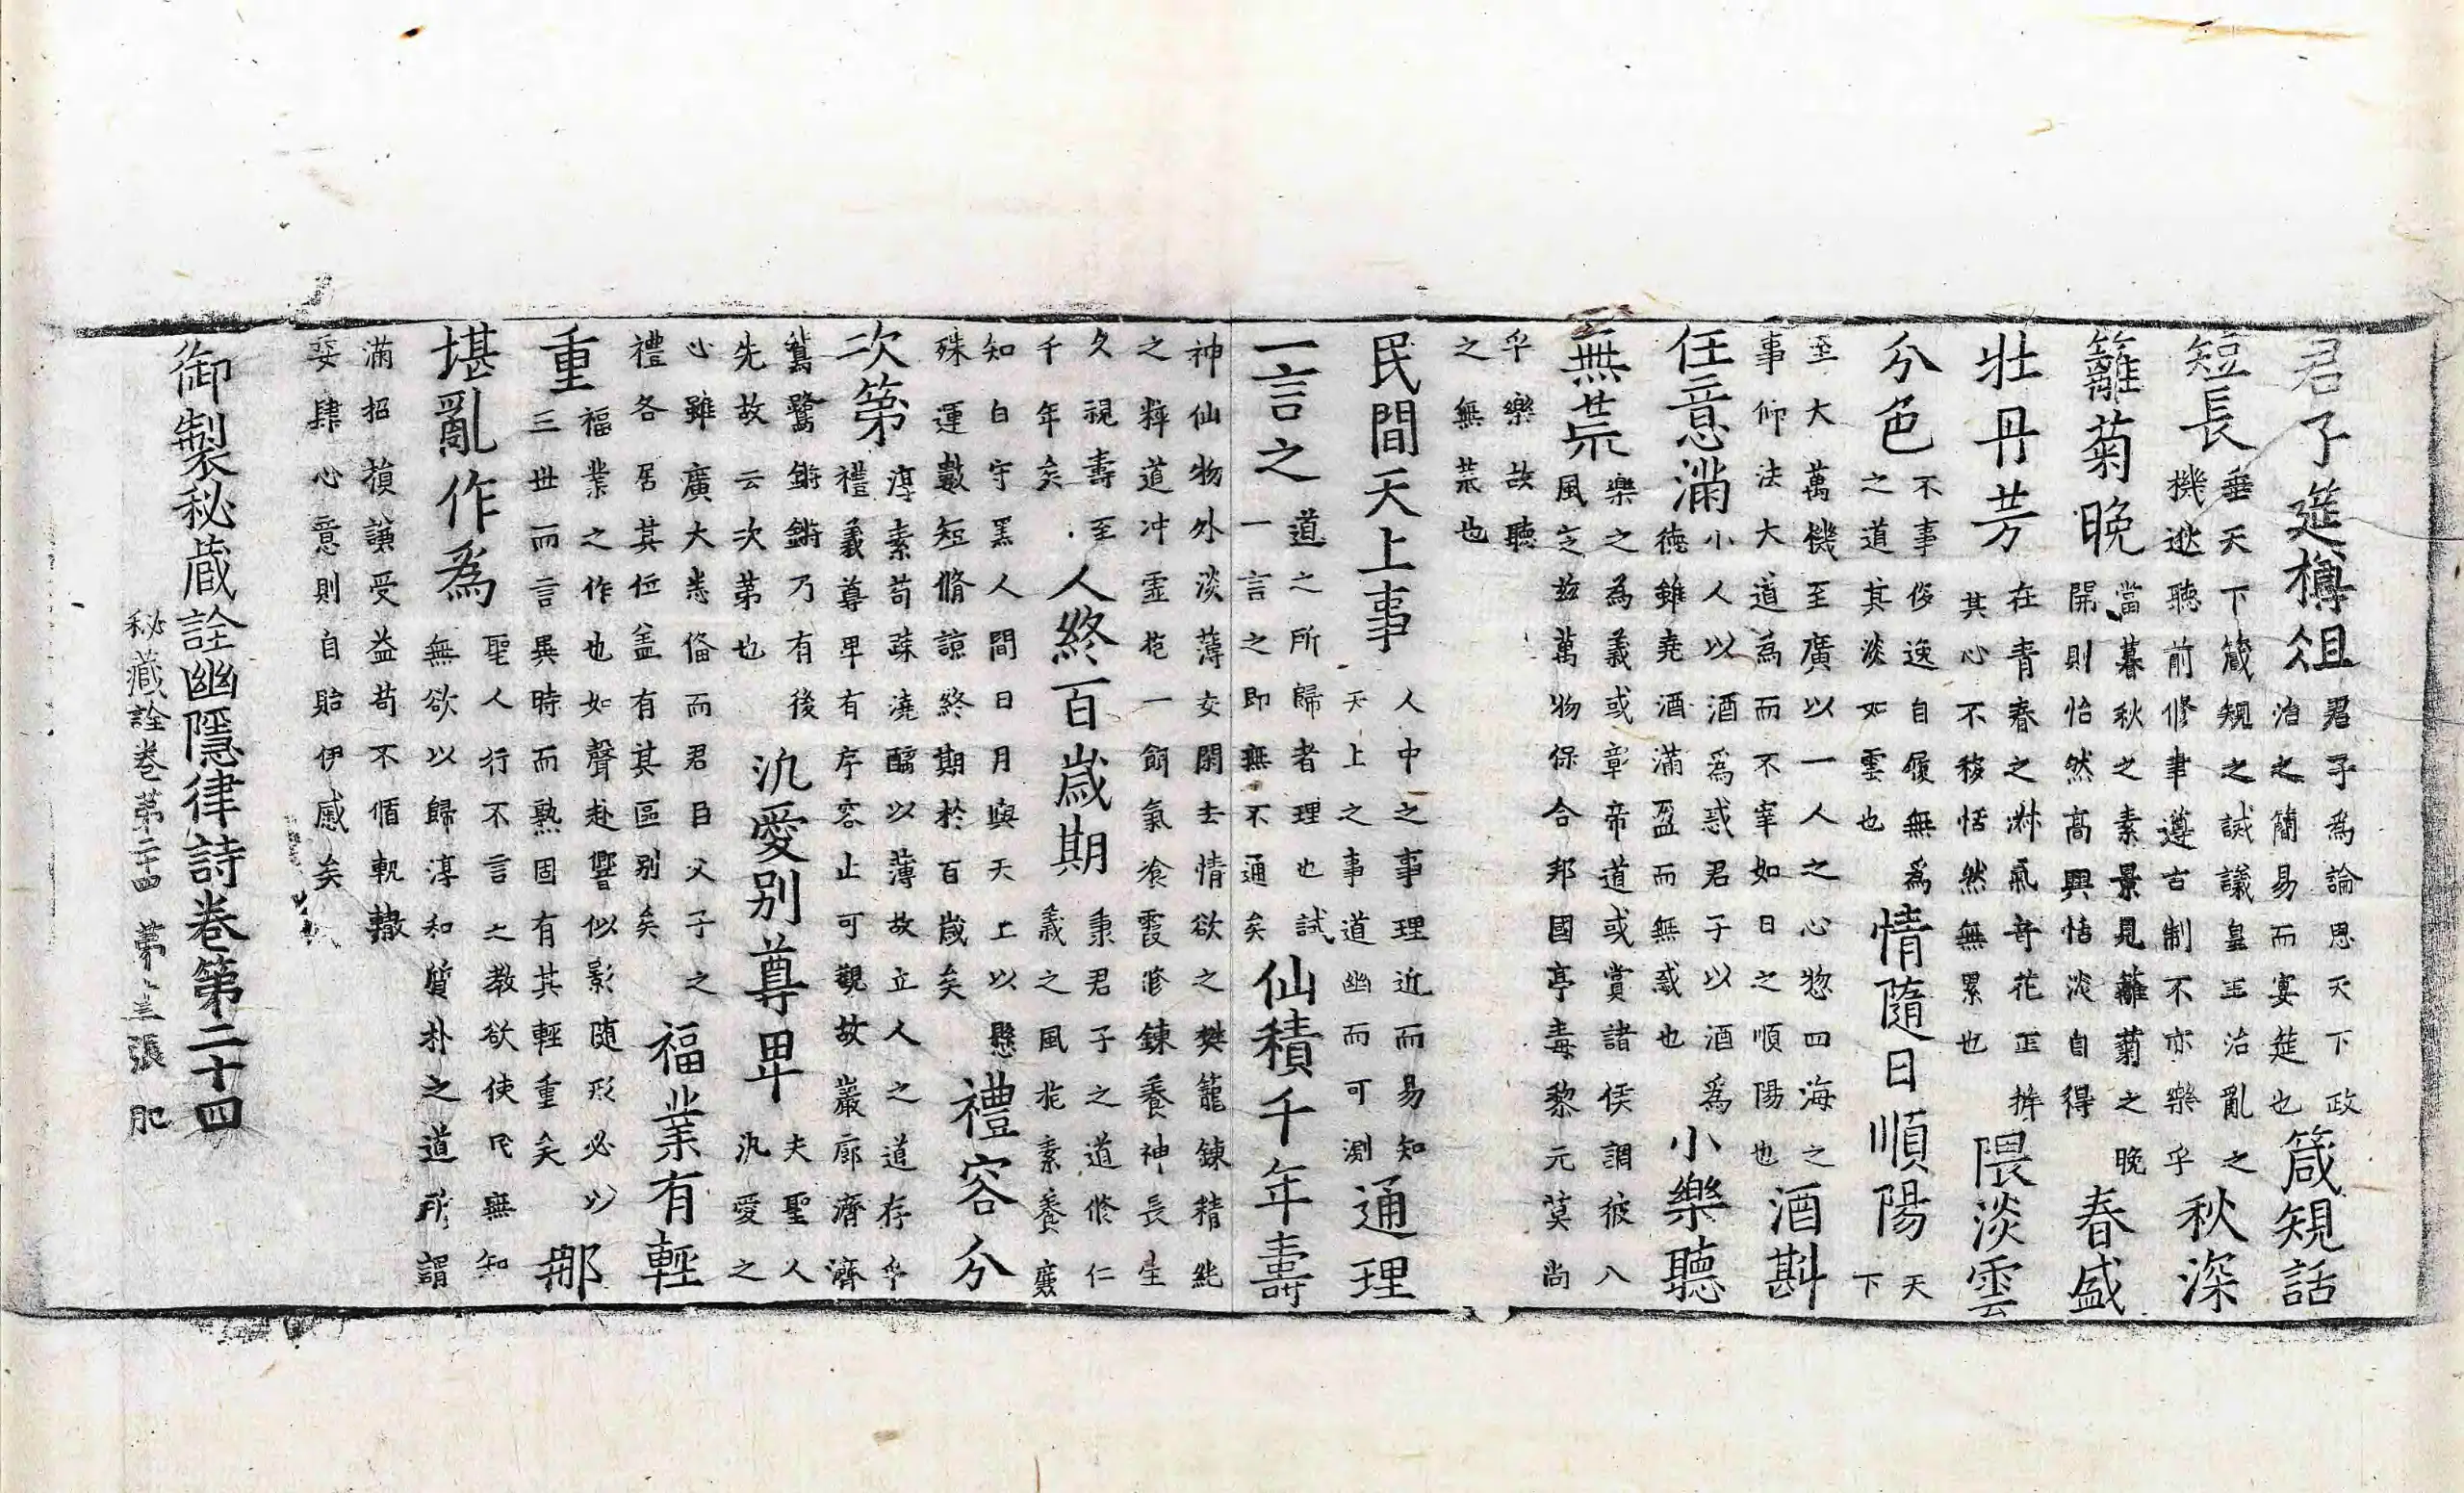 君子筵樽俎
君子為論思天下政
治之簡易而宴筵也
箴規話
短長
垂天下箴規之誡議皇王治亂之
機逖聽前修聿遵古制不亦樂乎
秋深
籬菊晚
當暮秋之素景見籬菊之晚
開則怡然高興恬淡自得
春盛
壮丹芳
在青春之淋氣奇花正
其心不移恬然無累也
隈淡雲
分色
不事俊逸自履無為
之道其淡如雲也
情隨日順陽
天
下
至大萬機至廣以一人之心惣四海之
事仰法大道為而不宰如日之順陽也
酒斟
任意滿
小人以酒為惑君子以酒為
徳雖堯酒滿盈而無惑也
小樂聽
無荒
樂之為義或彰帝道或賞諸侯調彼八
風玆萬物保合邦國亭毒黎元莫尚
乎樂故聽
之無荒也
民間天上事
人中之事理近而易知
天上之事道幽而可測
通理
一言之
道之所歸者理也試
一言之即無不通矣
仙積千年壽
神仙物外淡薄交閑去情欲之樊籠鍊精純
之粹道冲霊一飼氣飡霞修鍊養神長生
久視壽至
千年矣
人終百歲期
秉君子之道修仁
義之風素養
知白守黑人間日月與天上以懸
殊運數短脩諒終期於百歲矣
禮容分
次第
淳素苟疎澆醨以薄故立人之道存乎
禮義尊卑有序容止可觀故巖廊濟濟
鵷鷺鏘鏘乃有後
先故云次第也
汎愛別尊卑
夫聖人
汎愛之
心雖廣大悉俻而君臣父子之
禮各居其任盖有其區別矣
福業有輕
重
福業之作也如聲赴響似影随形必以
三世而言異時而熟固有其輕重矣
那
堪亂作為
聖人行不言之教欲使民無知
無欲以歸淳和質朴之道所謂
滿招損謙受益苟不循軌轍
妄肆心意則自貽伊慼矣
御製秘蔵詮幽隱律詩巻第二十四
秘藏詮巻第二十四 第三張 肥